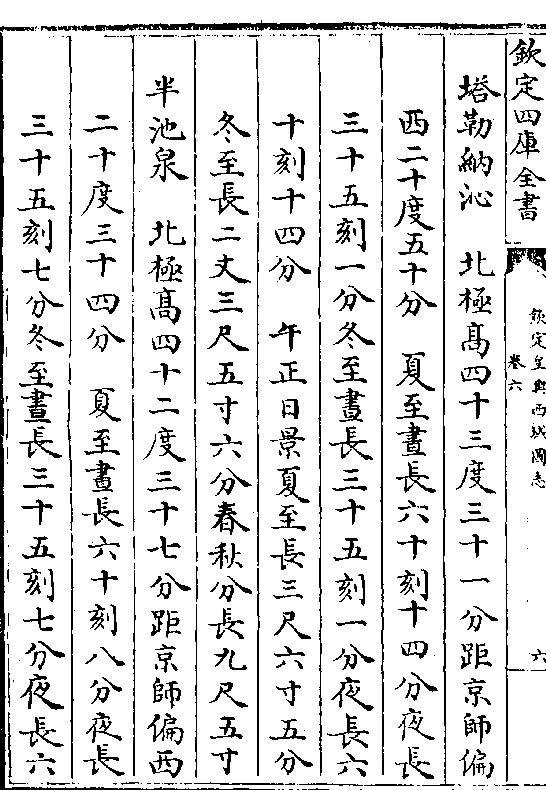 欽定四庫全書
欽定皇輿西域圖志
卷六
六
塔勒納沁　北極髙四十三度三十一分距京師偏
西二十度五十分　夏至晝長六十刻十四分夜長
三十五刻一分冬至晝長三十五刻一分夜長六
十刻十四分　午正日景夏至長三尺六寸五分
冬至長二丈三尺五寸六分春秋分長九尺五寸
半池泉　北極髙四十二度三十七分距京師偏西
二十度三十四分　夏至晝長六十刻八分夜長
三十五刻七分冬至晝長三十五刻七分夜長六